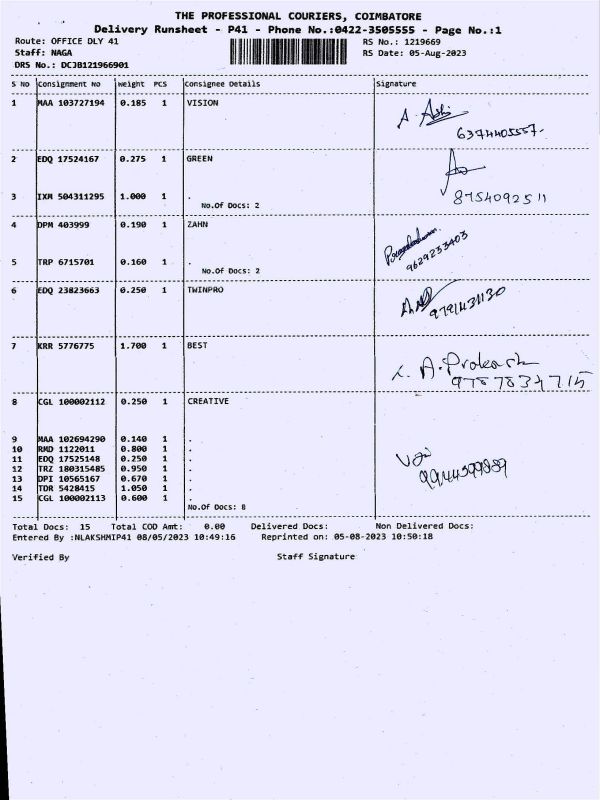 THE PROFESSIONAL COURIERS, COIMBATORE
Delivery Runsheet - P41 - Phone No.:0422-3505555 - Page No.:1
Route: OFFICE DLY 41 RS No.: 1219669
Staff: NAGA RS Date: 05-Aug-2023
DRS No.: DCJB121966901
S No Consignment No Weight PCS Consignee Details Signature
1 MAA 103727194 0.185 1 VISION
6374405557-
2 EDQ 17524167 0.275 1 GREEN
3 IXM 504311295 1.000 1 . 8754092511
No.Of Docs: 2
4 DPM 403999 0.190 1 ZAHN
9629233403
5 TRP 6715701 0.160 1 .
No.Of Docs: 2
6 EDQ 23823663 0.250 1 TWINPRO
9791431130
7 KRR 5776775 1.700 1 BEST
A. Prakash
8 CGL 100002112 0.250 1 CREATIVE
9 MAA 102694290 0.140 1 .
10 RMD 1122011 0.800 1 .
11 EDQ 17525148 0.250 1 .
12 TRZ 180315485 0.950 1 .
13 DPI 10565167 0.670 1 .
14 TDR 5428415 1.050 1 .
15 CGL 100002113 0.600 1 .
No.Of Docs: 8
Total Docs: 15 Total COD Amt: 0.00 Delivered Docs: Non Delivered Docs:
Entered By :NLAKSHMIP41 08/05/2023 10:49:16 Reprinted on: 05-08-2023 10:50:18
Verified By Staff Signature